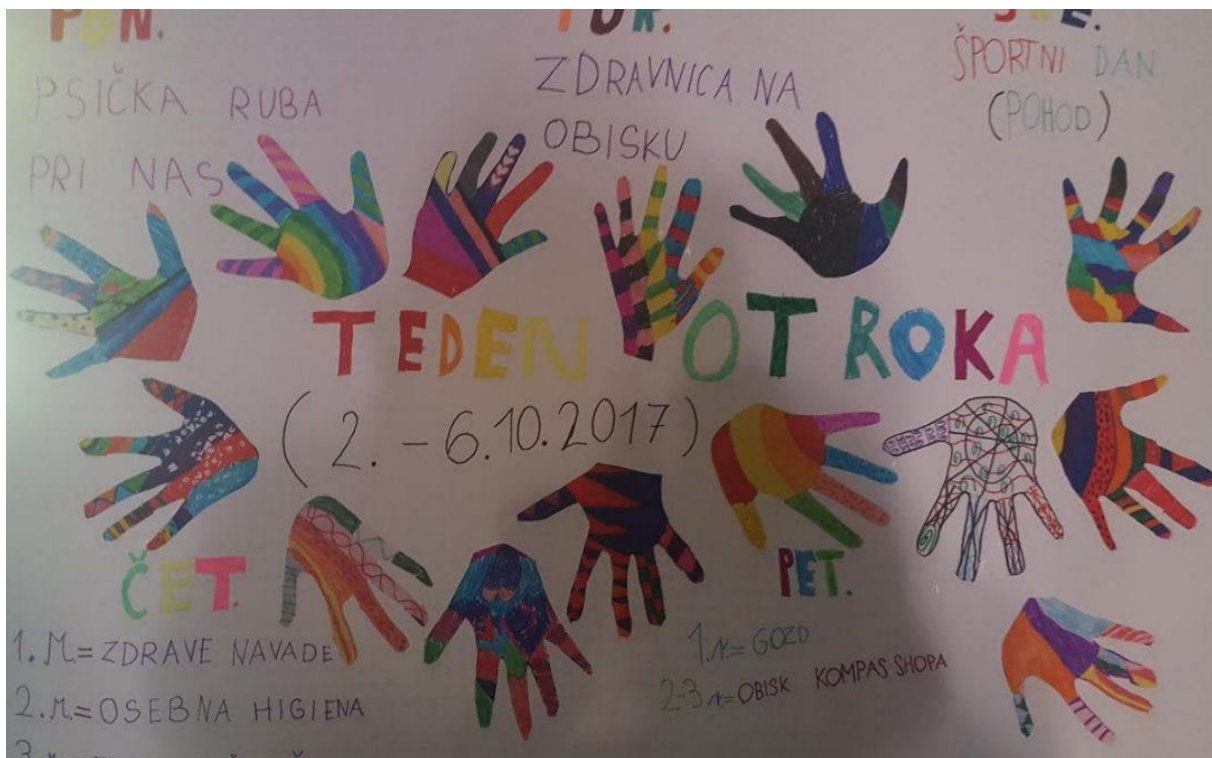 PON.
PSIČKA RUBA
PRI NAS
TOR.
ZDRAVNICA NA
OBISKU
SRE.
ŠPORTNI DAN
(POHOD)
TEDEN OTROKA
(2. – 6.10.2017)
ČET.
1. R= ZDRAVE NAVADE
2. R= OSEBNA HIGIENA
PET.
1. R= GOZD
2-3 R= OBISK KOMPAS SHOPA